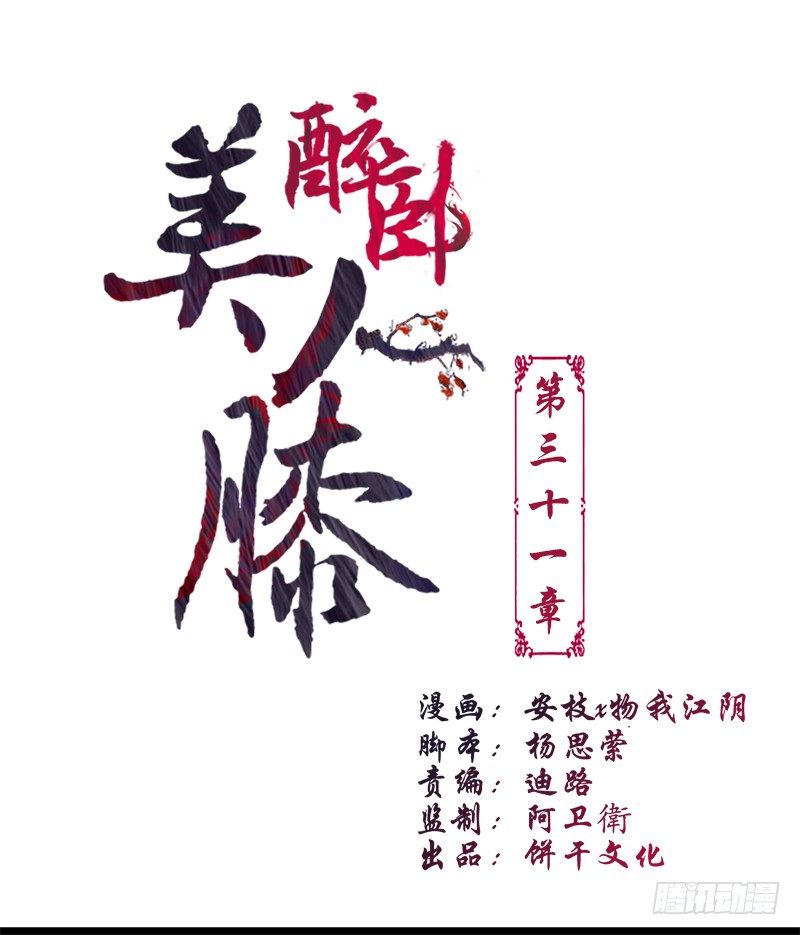 醉卧
美人
膝
第三十一章
漫画：安枝x物我江阴
脚本：杨思萦
责编：迪路
监制：阿卫衛
出品：饼干文化
腾讯动漫